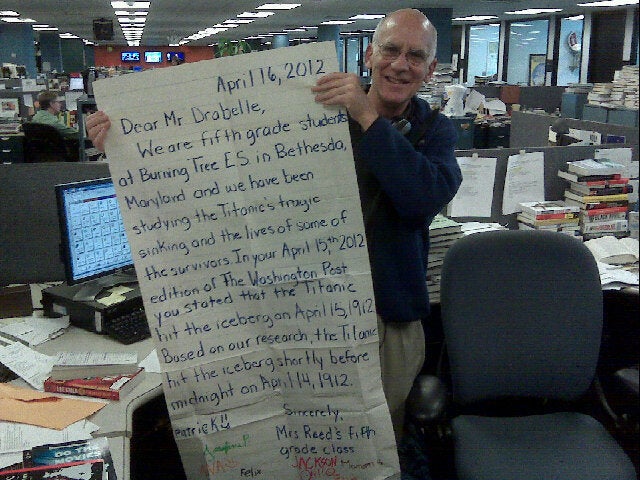 April 16, 2012
Dear Mr. Drabelle,
We are fifth grade students
at Burning Tree ES in Bethesda,
Maryland and we have been
studying the Titanic's tragic
sinking and the lives of some of
the survivors. In your April 15,th 2012
edition of The Washington Post
you stated that the Titanic
hit the iceberg on April 15, 1912.
Based on our research, the Titanic
hit the iceberg shortly before
midnight on April 14, 1912.
Sincerely,
Mrs. Reed's fifth
grade class
Patrick!!
Felix
JACKSON